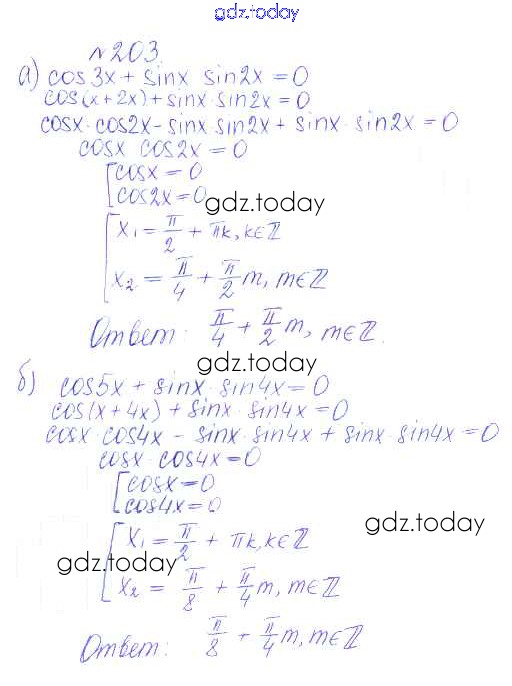 gdz.today
№203.
а) cos3x + sinx sin2x = 0
cos(x + 2x) + sinx · sin2x = 0
cosx · cos2x − sinx sin2x + sinx · sin2x = 0
cosx cos2x = 0
[cosx = 0
cos2x = 0
gdz.today
[x₁ = π/2 + πk, k∈ℤ
x₂ = π/4 + π/2 m, m∈ℤ
Ответ: π/4 + π/2 m, m∈ℤ.
gdz.today
б) cos5x + sinx · sin4x = 0
cos(x + 4x) + sinx · sin4x = 0
cosx · cos4x − sinx · sin4x + sinx · sin4x = 0
cosx · cos4x = 0
[cosx = 0
cos4x = 0
gdz.today
[x₁ = π/2 + πk, k∈ℤ
gdz.today
x₂ = π/8 + π/4 m, m∈ℤ
Ответ: π/8 + π/4 m, m∈ℤ